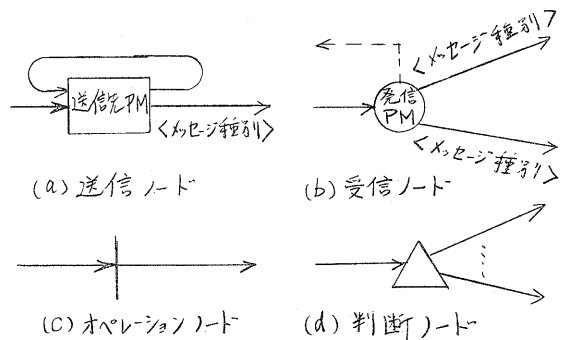 送信先PM
<メッセージ種別>
(a) 送信ノード
<メッセージ種別>
発信
PM
<メッセージ種別>
(b) 受信ノード
(c) オペレーションノード
(d) 判断ノード